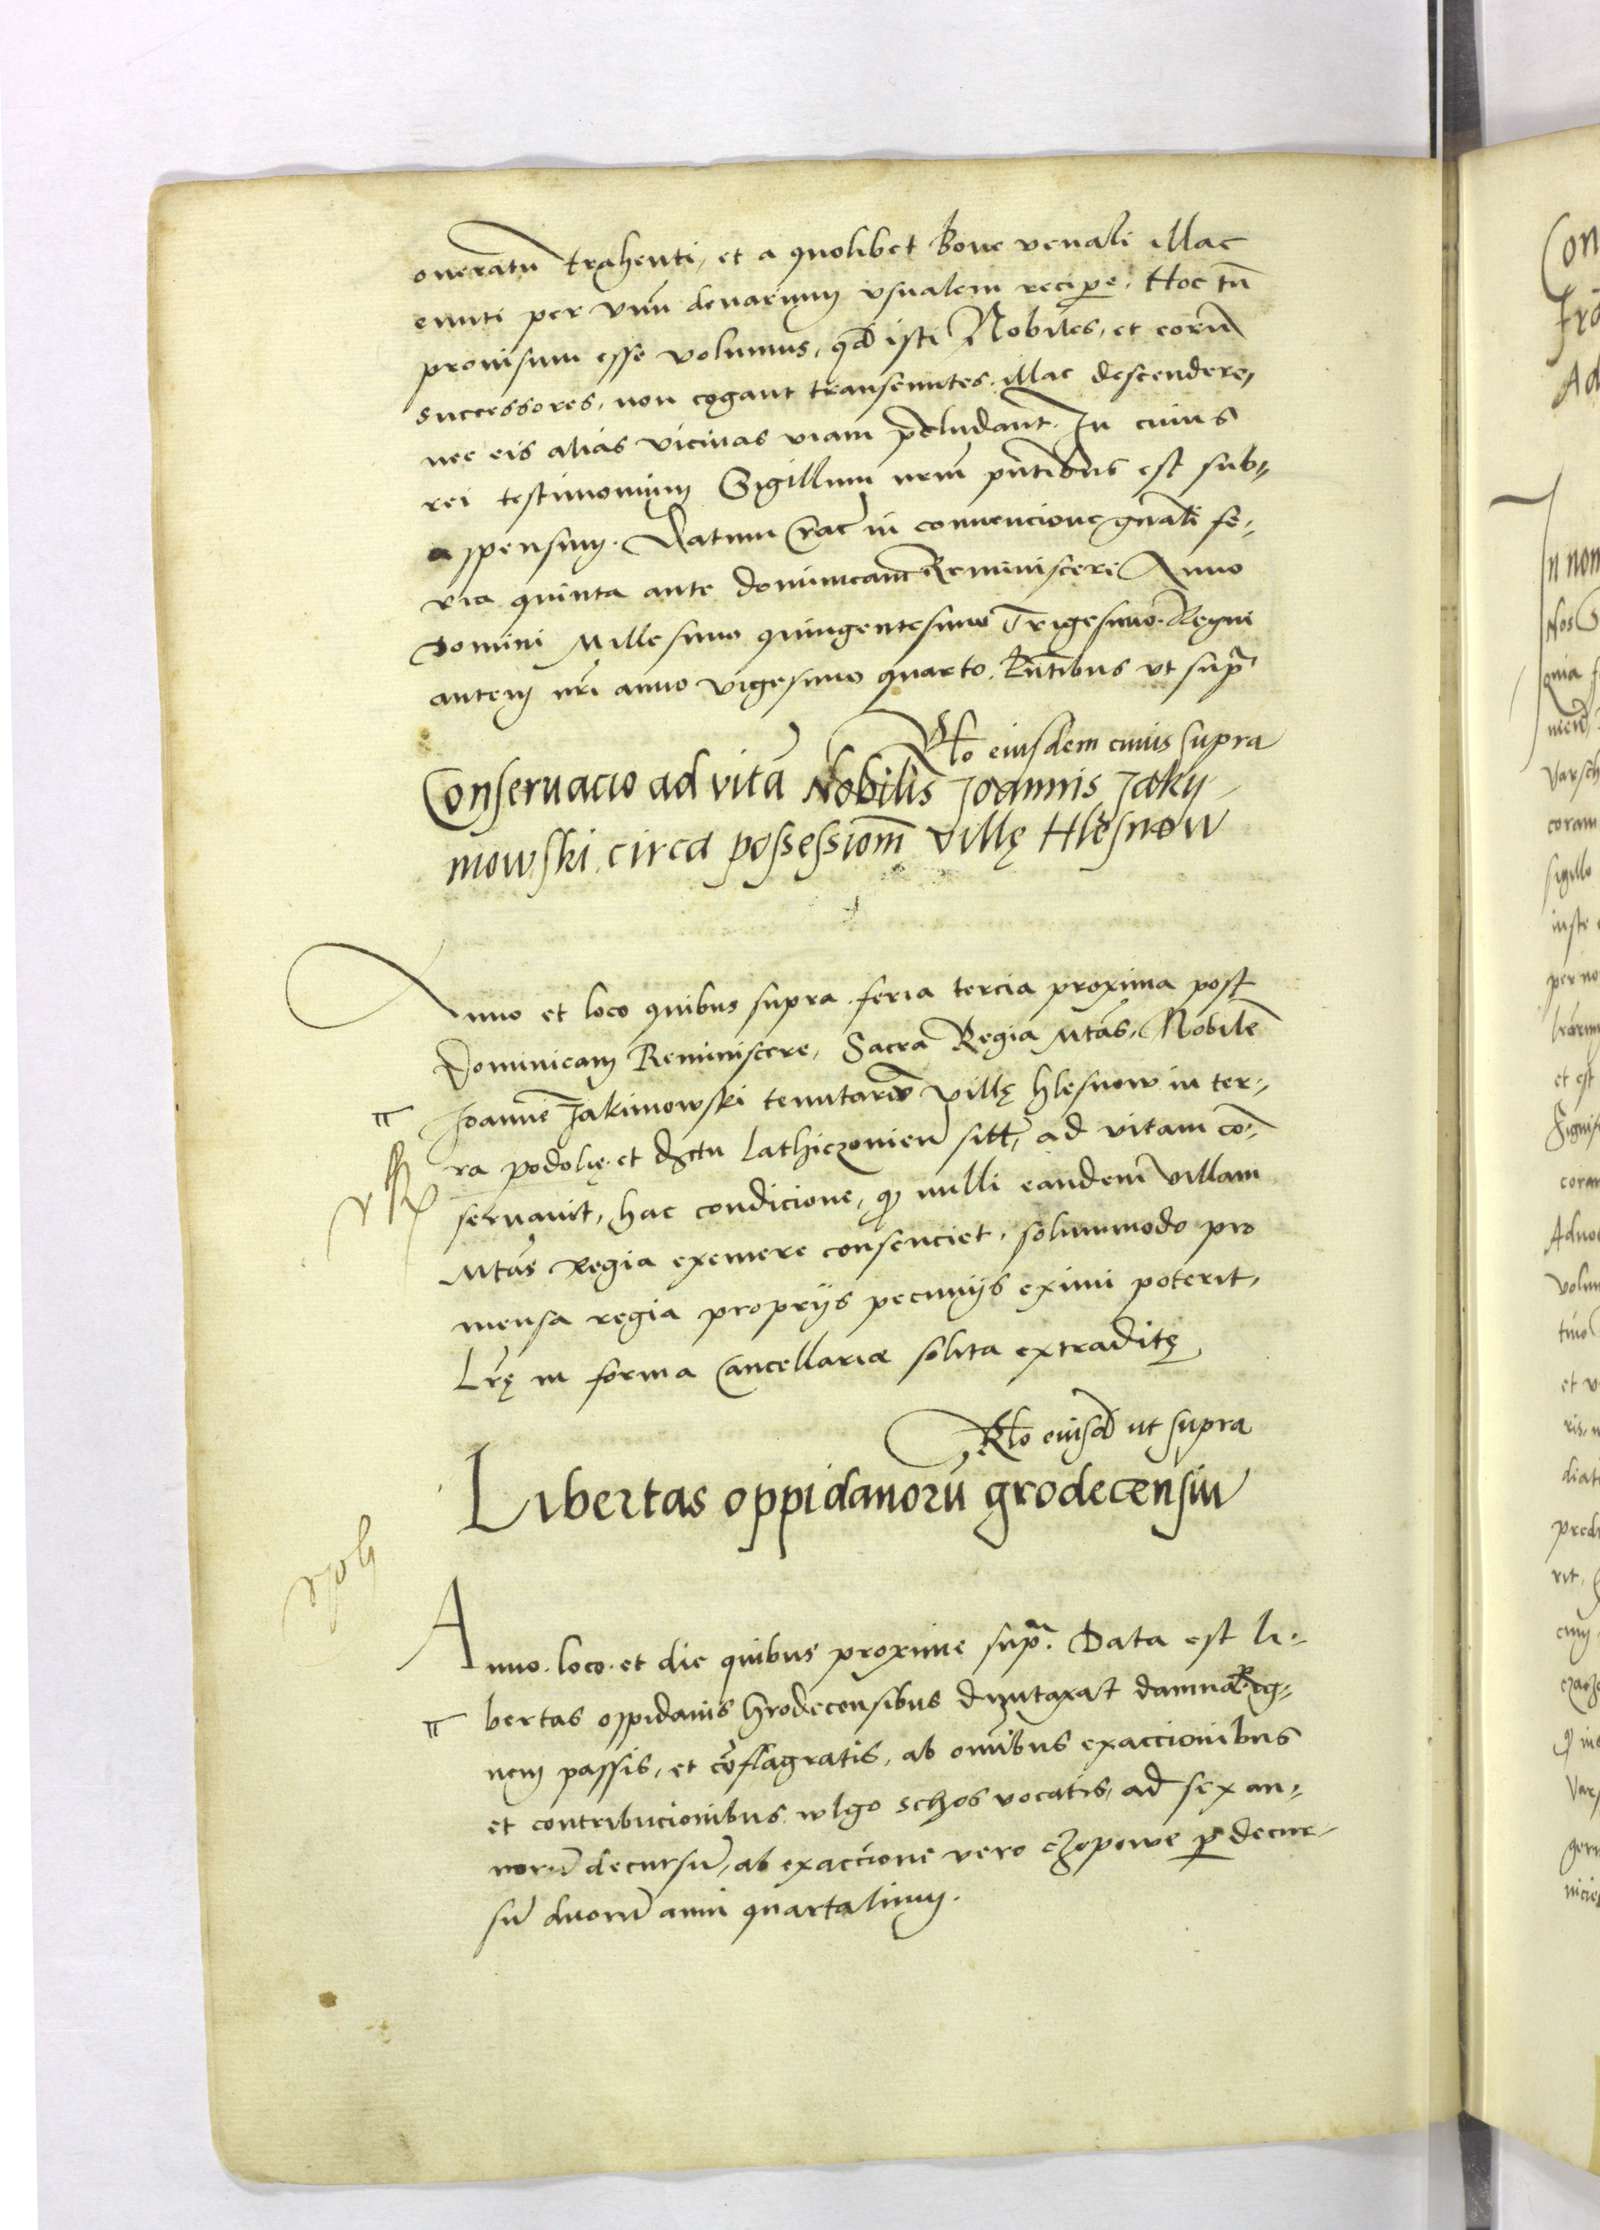 oneratum trahenti, et a quolibet Boue venali illac
eunti per vnū denarium vsualem recipe. Hoc tn̄
prouisum esse volumus, qd isti Nobiles, et eorū
successores, non cogant transeuntes illac descendere,
nec eis alias vicinas viam p̄cludant. In cuius
rei testimonium Sigillum nr̄m pn̄tibus est sub⸗
appensum. Datum Crac̄ in conuencione gn̄ali fe⸗
ria quinta ante dominicam Reminiscere Anno
Domini Millesimo quingentesimo Trigesimo. Regni
autem nr̄i anno vigesimo quarto. Pn̄tibus vt supra
Rlo eiusdem cuius supra
Conseruacio ad vitā Nobilis Joannis Jaky⸗
mowski circa possessionem̄ villę Hlesnow
Anno et loco quibus supra feria tercia proxima post
Dominicam Reminiscere, Sacra Regia Mtas, Nobilē
Joannē Jakimowski tenutariū villę hlesnow in ter⸗
ra podolię et dictu Lathiczouien̄ sitt̄, ad vitam cō⸗
seruauit, hac condicione, q nulli eandem villam
Mtas Regia exemere consenciet, solummodo pro
mensa regia proprijs pecunijs eximi poterit,
Lr̄ę in forma Cancellariæ solita extraditę
Rlo eiusd ut supra
Libertas oppidanorū grodecensiū
Anno loco et die quibus proxime supra. Data est li⸗
bertas oppidanis hrodecensibus duntaxat damna p ig⸗
nem passis, et cōflagratis, ab omibus exaccionibus
et contribucionibus wlgo schos vocatis, ad sex an⸗
norū decursū, ab exaccione vero czopowe p decur⸗
sū duorū anni quartalium.